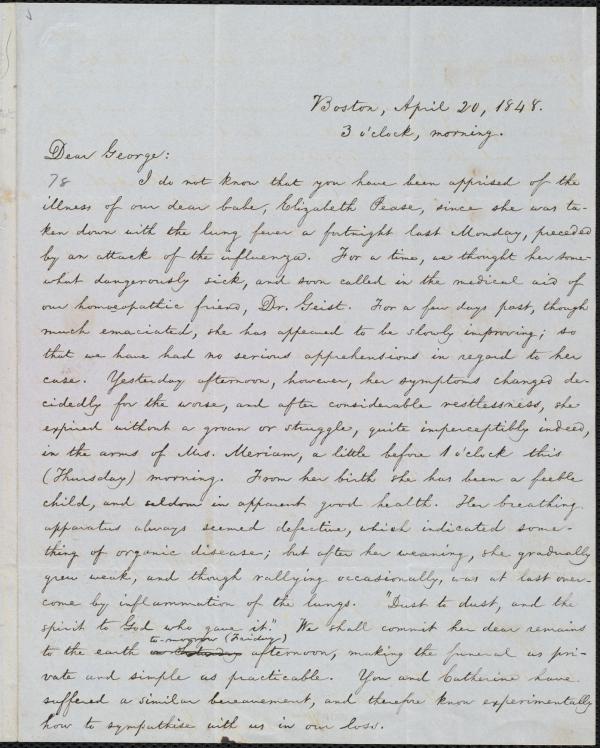 Boston, April 20, 1848.
3 o'clock, morning.
Dear George:
78 I do not know that you have been apprised of the
illness of our dear babe, Elizabeth Pease, since she was ta-
ken down with the lung fever a fortnight last Monday, preceded
by an attack of the influenza. For a time, we thought her some-
what dangerously sick, and soon called in the medical aid of
our homœopathic friend, Dr. Geist. For a few days past, though
much emaciated, she has appeared to be slowly improving; so
that we have had no serious apprehensions in regard to her
case. Yesterday afternoon, however, her symptoms changed de-
cidedly for the worse, and after considerable restlessness, she
expired without a groan or struggle, quite imperceptibly indeed,
in the arms of Mrs. Meriam, a little before 1 o'clock this
(Thursday) morning. From her birth she has been a feeble
child, and seldom in apparent good health. Her breathing
apparatus always seemed defective, which indicated some-
thing of organic disease; but after her weaning, she gradually
grew weak, and though rallying occasionally, was at last over-
come by inflammation of the lungs. "Dust to dust, and the
spirit to God who gave it." We shall commit her dear remains
to-morrow (Friday)
to the earth on Saturday afternoon, making the funeral as pri-
vate and simple as practicable. You and Catherine have
suffered a similar bereavement, and therefore know experimentally
how to sympathise with us in our loss.